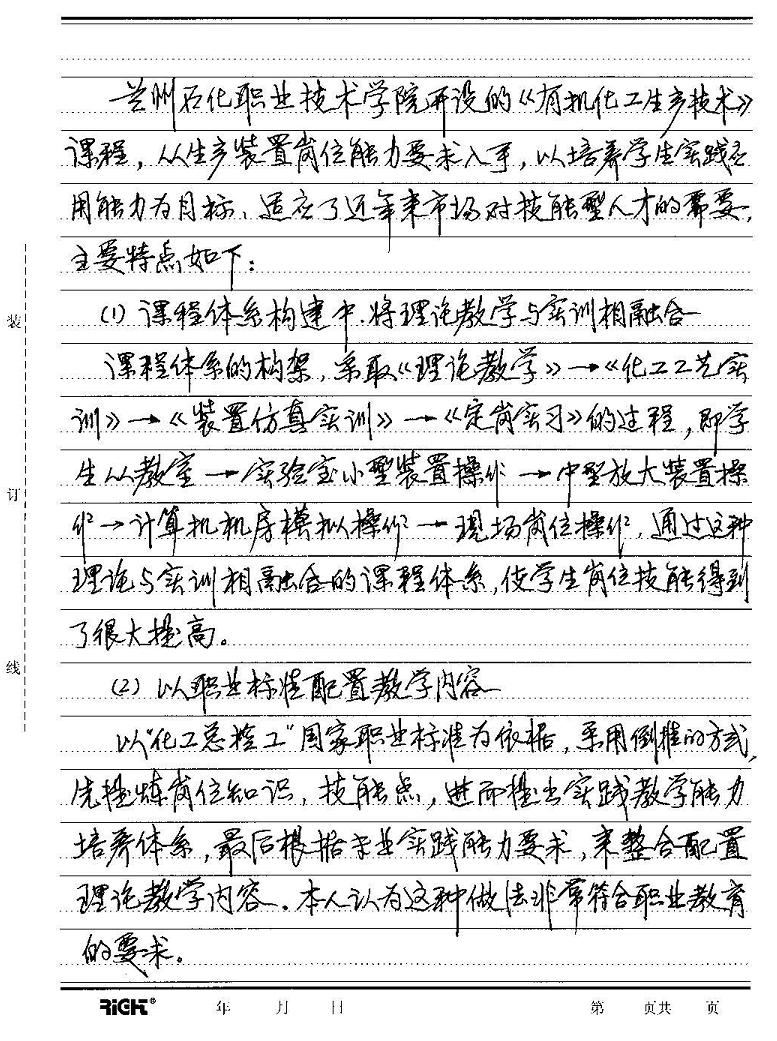 兰州石化职业技术学院开设的《有机化工生产技术》
课程，从生产装置岗位能力要求入手，以培养学生实践应
用能力为目标，适应了近年来市场对技能型人才的需要，
主要特点如下：
(1) 课程体系构建中，将理论教学与实训相融合
课程体系的构架，采取《理论教学》→《化工工艺实
训》→《装置仿真实训》→《定岗实习》的过程，即学
生从教室→实验室小型装置操作→中型放大装置操
作→计算机机房模拟操作→现场岗位操作，通过这种
理论与实训相融合的课程体系，使学生岗位技能得到
了很大提高。
(2) 以职业标准配置教学内容
以“化工总控工”国家职业标准为依据，采用倒推的方式，
先提炼岗位知识，技能点，进而提出实践教学能力
培养体系，最后根据专业实践能力要求，来整合配置
理论教学内容。本人认为这种做法非常符合职业教育
的要求。
装
订
线
RIGHT® 年 月 日 第 页共 页